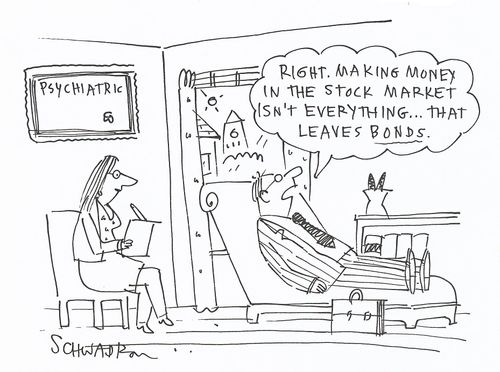 PSYCHIATRIC
RIGHT. MAKING MONEY
IN THE STOCK MARKET
ISN'T EVERYTHING... THAT
LEAVES BONDS.
SCHWADRON